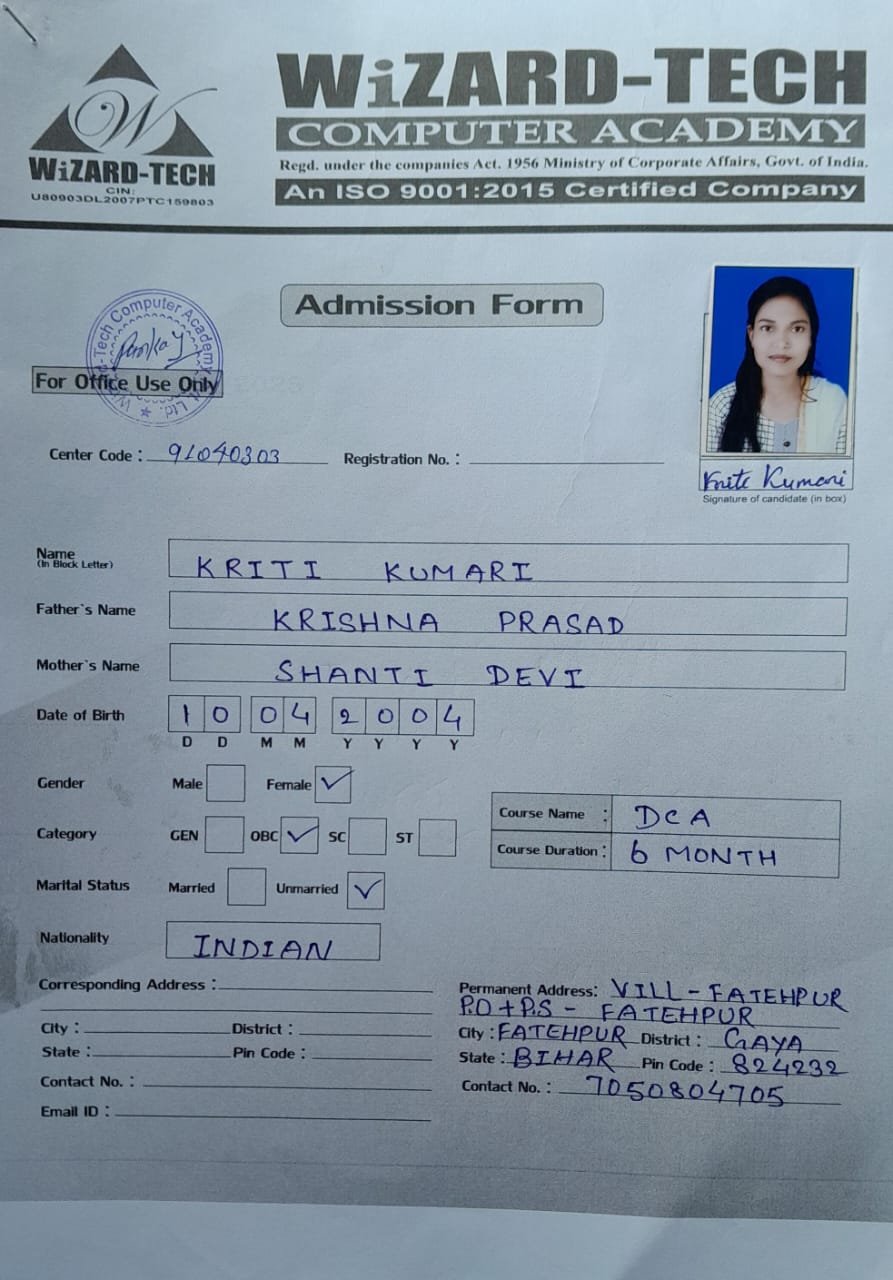 WiZARD-TECH
COMPUTER ACADEMY
Regd. under the companies Act. 1956 Ministry of Corporate Affairs, Govt. of India.
An ISO 9001:2015 Certified Company
W
WiZARD-TECH
CIN:
U80903DL2007PTC159803
Admission Form
Wizard-Tech Computer Academy Ltd.
Pankaj
For Office Use Only
Center Code : 91040303 Registration No. :
Kriti Kumari
Signature of candidate (in box)
Name KRITI KUMARI
(In Block Letter)
Father`s Name KRISHNA PRASAD
Mother`s Name SHANTI DEVI
Date of Birth 10 04 2004
D D M M Y Y Y Y
Gender Male Female ✓
Course Name : DCA
Category GEN OBC ✓ SC ST
Course Duration : 6 MONTH
Marital Status Married Unmarried ✓
Nationality INDIAN
Corresponding Address :
City : District :
State : Pin Code :
Contact No. :
Email ID :
Permanent Address: VILL - FATEHPUR
P.O + P.S - FATEHPUR
City : FATEHPUR District : GAYA
State : BIHAR Pin Code : 824232
Contact No. : 7050804705